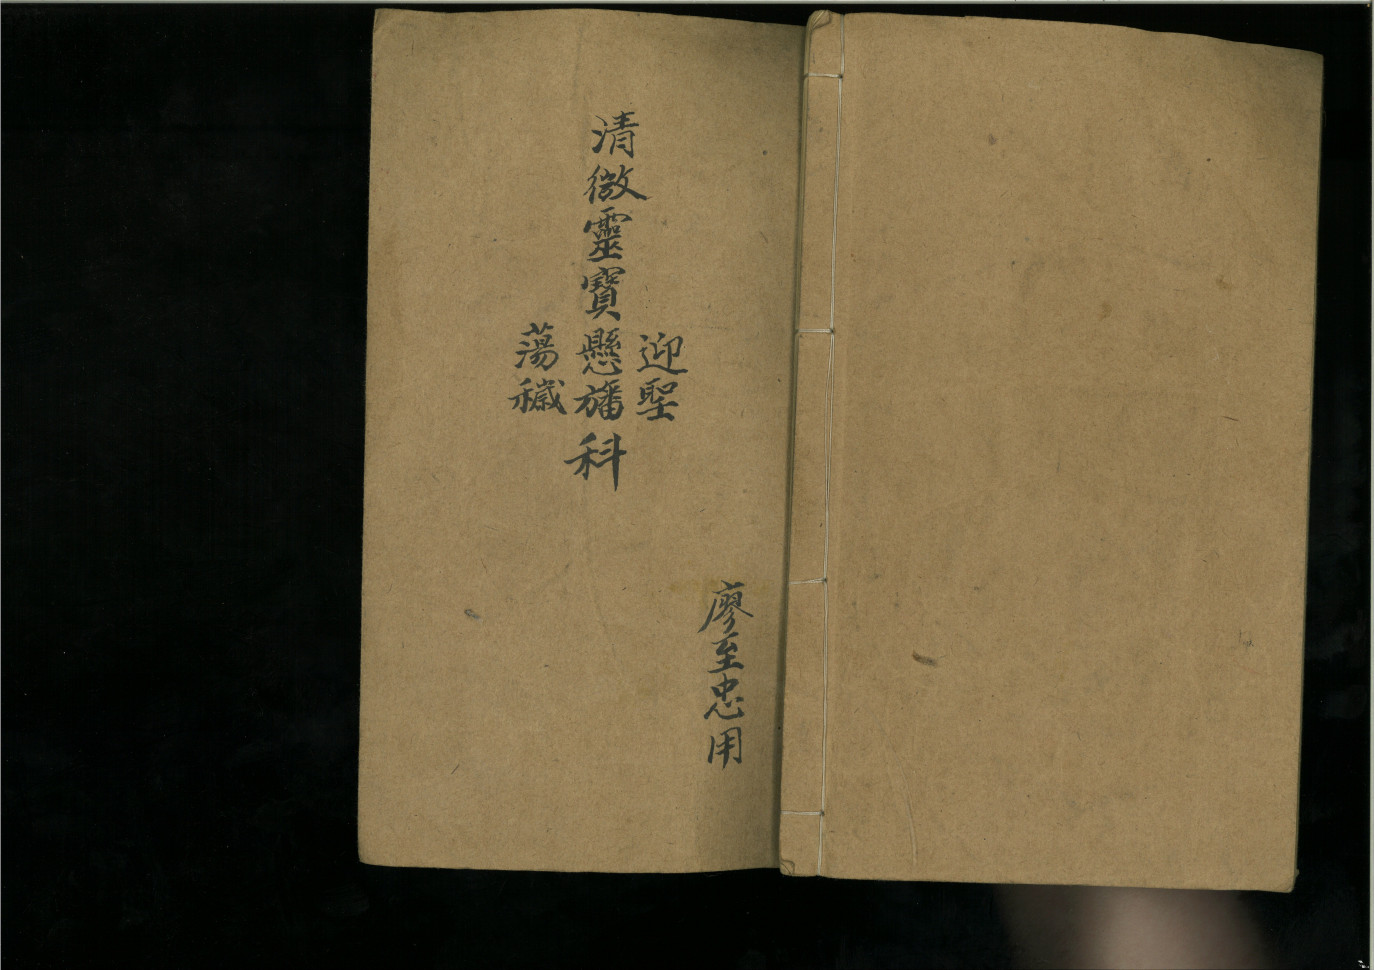 廖至忠用
迎聖
清微靈寶懸旛科
蕩穢